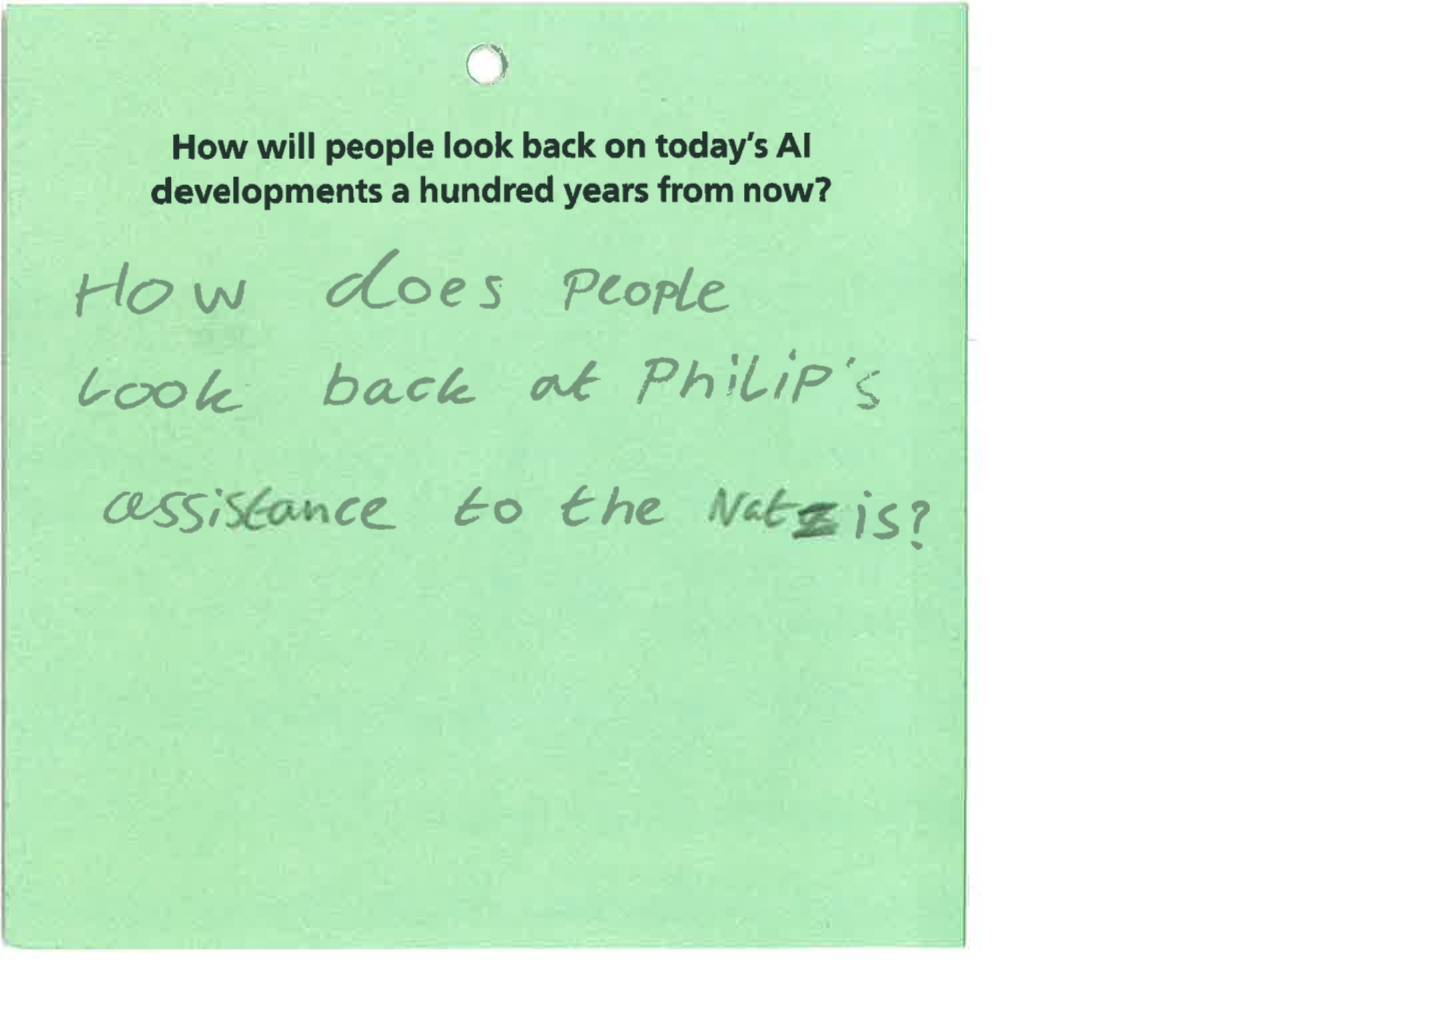 How will people look back on today's AI
developments a hundred years from now?
How does people
look back at Philip's
assistance to the Natzis?